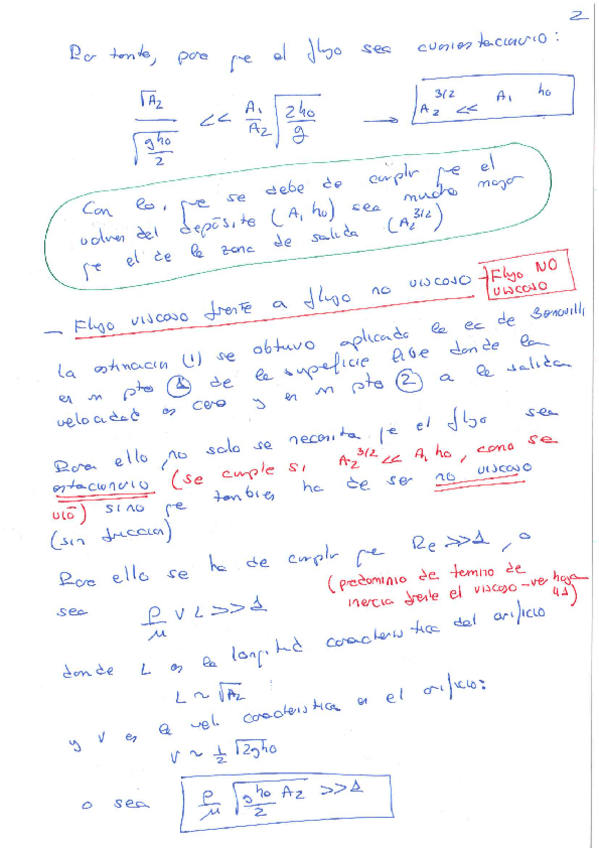 2
Por tanto, para que el flujo sea cuasiestacionario:
√A₂ / √(gh₀/2) << A₁/A₂ √(2h₀/g) → A₂^3/2 << A₁ h₀
Con lo, que se debe de cumplir que el
volumen del depósito (A₁ h₀) sea mucho mayor
que el de la zona de salida (A₂^3/2)
- Flujo viscoso frente a flujo no viscoso → Flujo NO
VISCOSO
La estimación (1) se obtuvo aplicando la ec de Bernouilli
en un pto ① de la superficie libre donde la
velocidad es cero y en un pto ② a la salida
Para ello, no solo se necesita que el flujo sea
estacionario (se cumple si A₂^3/2 << A₁ h₀, como se
vió) sino que tambien ha de ser no viscoso
(sin friccion)
Para ello se ha de cumplir que Re >> 1, o
sea ρ/μ V L >> 1
(predominio de termino de
inercia frente el viscoso - ver hoja
41)
donde L es la longitud caracteristica del orificio
L ~ √A₂
y V es la vel. caracteristica en el orificio:
V ~ 1/2 √2gh₀
o sea ρ/μ √(gh₀/2 A₂) >> 1